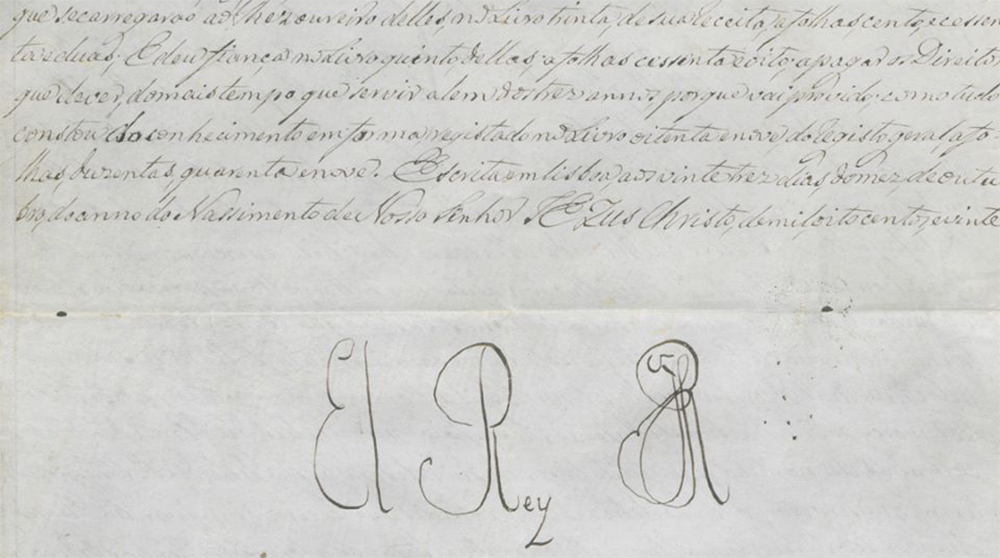 que se carregaraõ ao Thezoureiro delles, no Livro trinta, de sua Receita, a folhas, cento, e cessen
ta e duas; E deu fiança no Livro quinto dellas, a folhas cessenta e oito, a pagar os Direitos
que dever, do mais tempo que servir alem dos trez annos, porque vai provido; como tudo
constou do conhecimento em forma, registado no Livro oitenta e nove, do Registo geral, a fo
lhas, duzentas, quarenta e nove. Escrita em Lisboa, aos vinte trez dias, do mez de outu
bro, do anno do Nassimento de Nosso Senhor JEZus Christo, de mil, oito centos, e vinte
El Rey